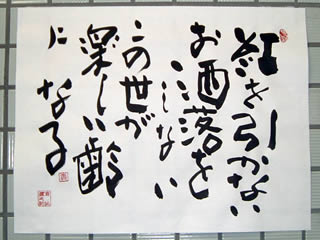 紅を引かない
お洒落を
しない
この世が
淋しい齢
になる